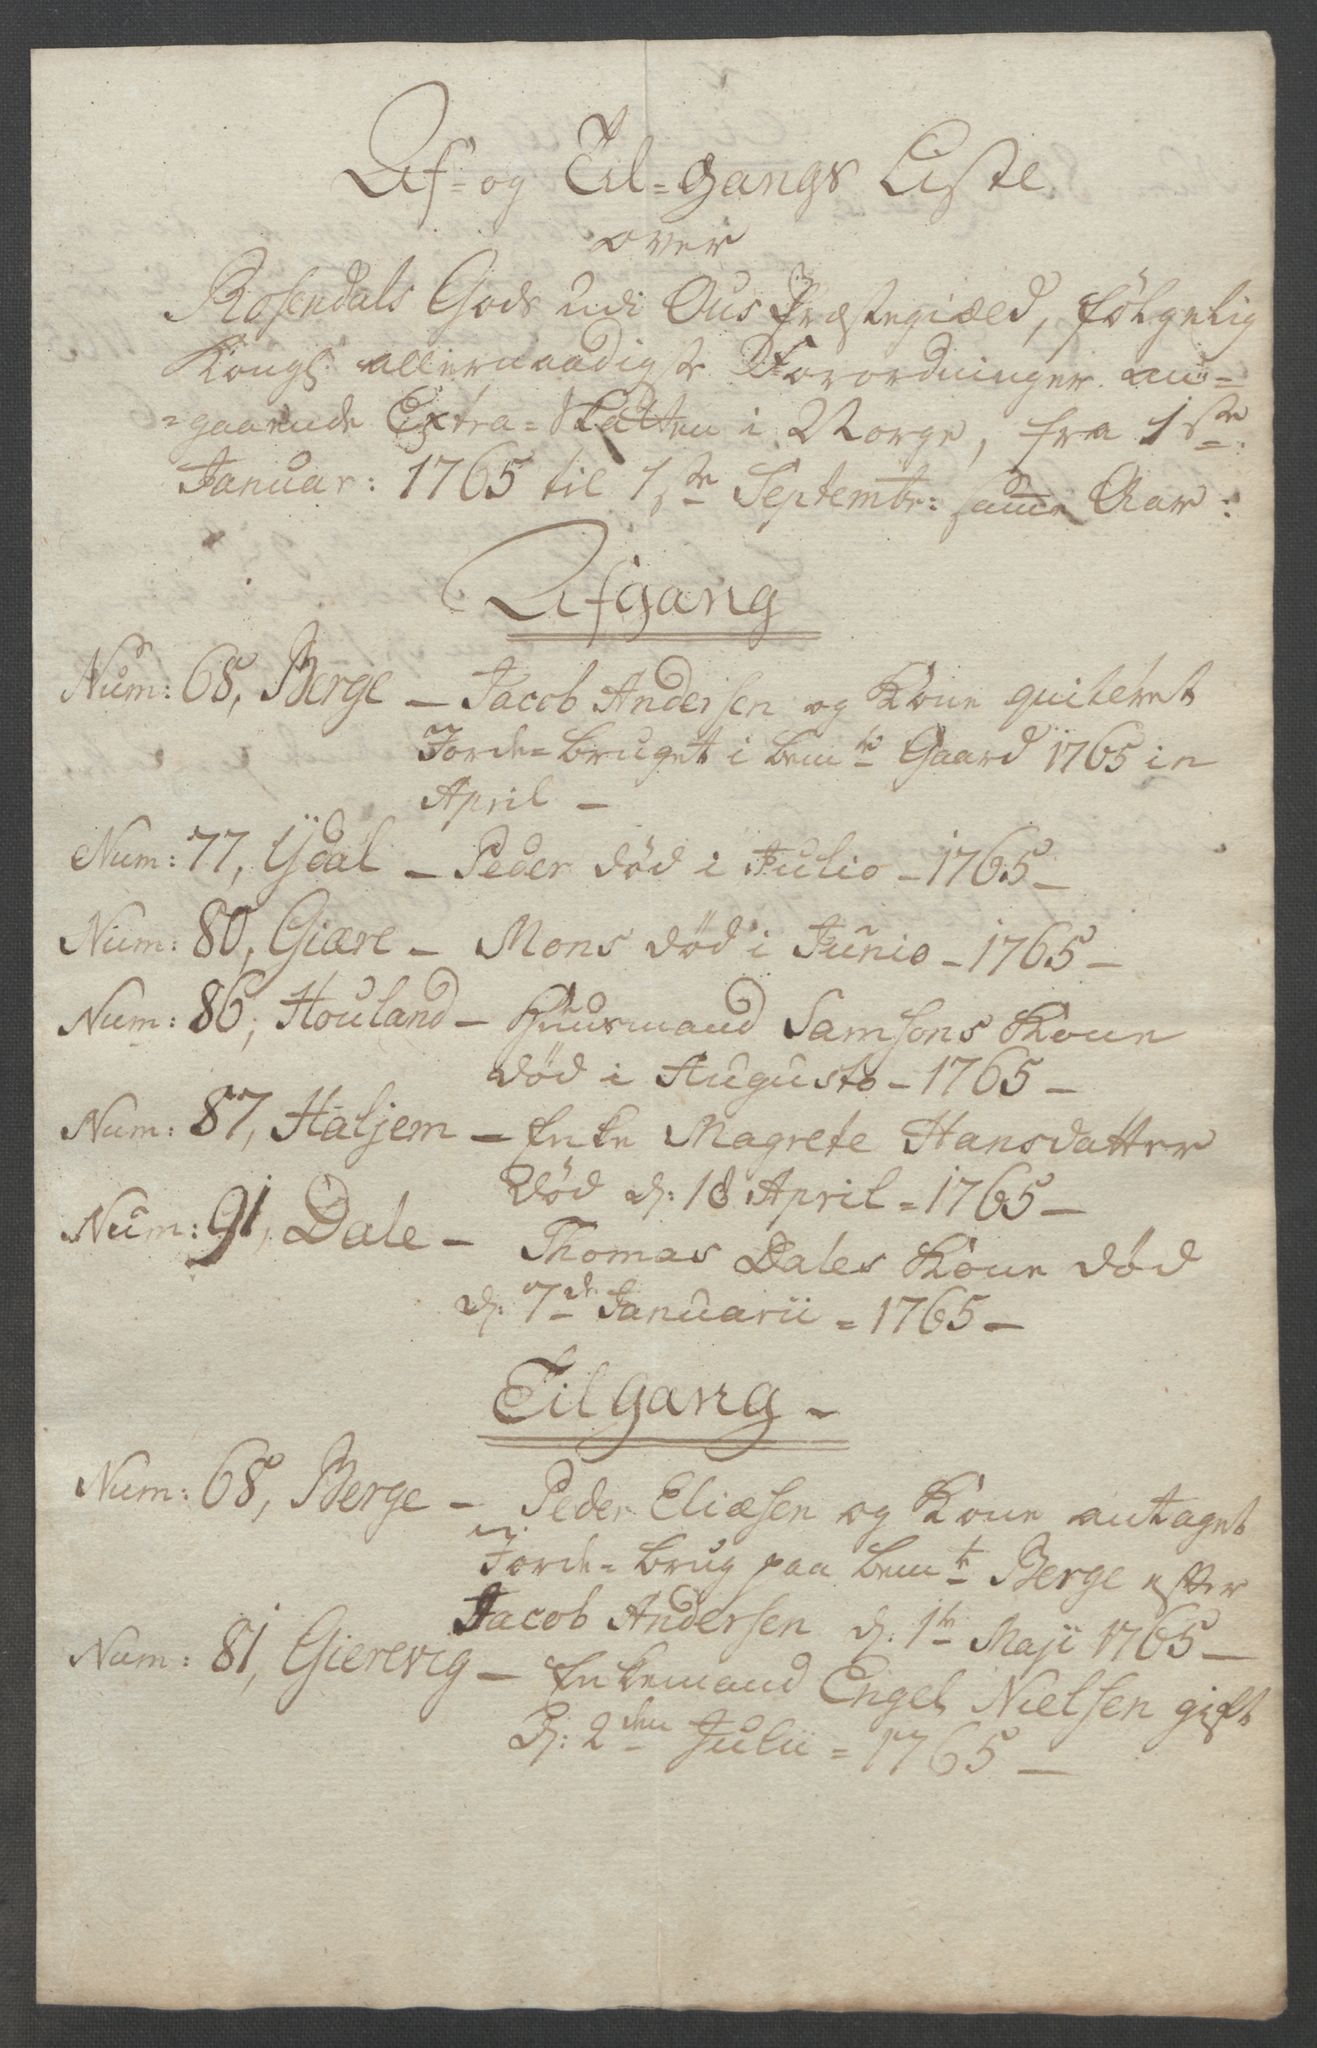 Af- og Til-gangs Liste
over
Rosendals Gods udi Ous Præstegiæld, følgelig
Kongl: allernaadigste Forordninger an=
=gaaende Extra-Skatten i Norge, fra 1ste
Januar: 1765 til 1ste Septembr: samme Aar:
Afgang
Num: 68, Berge - Jacob Andersen og Kone quiteret
Jorde-bruget i bemte Gaard 1765 in
April -
Num: 77, Ydal - Peder död i Julio - 1765 -
Num: 80, Giære - Mons död i Junio - 1765 -
Num: 86, Houland - Huusmand Samsons Kone
död i Augusto - 1765 -
Num: 87, Haljem - Enke Magrete Hansdatter
Död d: 18 April = 1765 -
Num: 91, Dale - Thomas Dales Kone död
d: 7de Januarii = 1765 -
Tilgang -
Num: 68, Berge - Peder Eliæsen og Kone antaget
Jorde-brug paa bemte Berge efter
Jacob Andersen d: 1te Maji 1765 -
Num: 81, Gierevig - Enkemand Engel Nielsen gift
D: 2den Julii = 1765 -